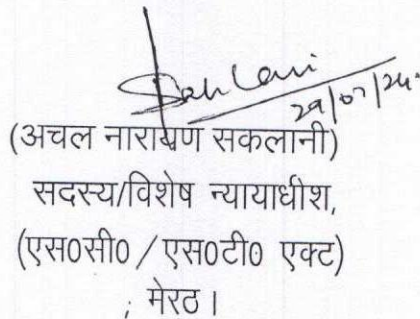 29/07/24
(अचल नारायण सकलानी)
सदस्य/विशेष न्यायाधीश,
(एस0सी0 / एस0टी0 एक्ट)
मेरठ।